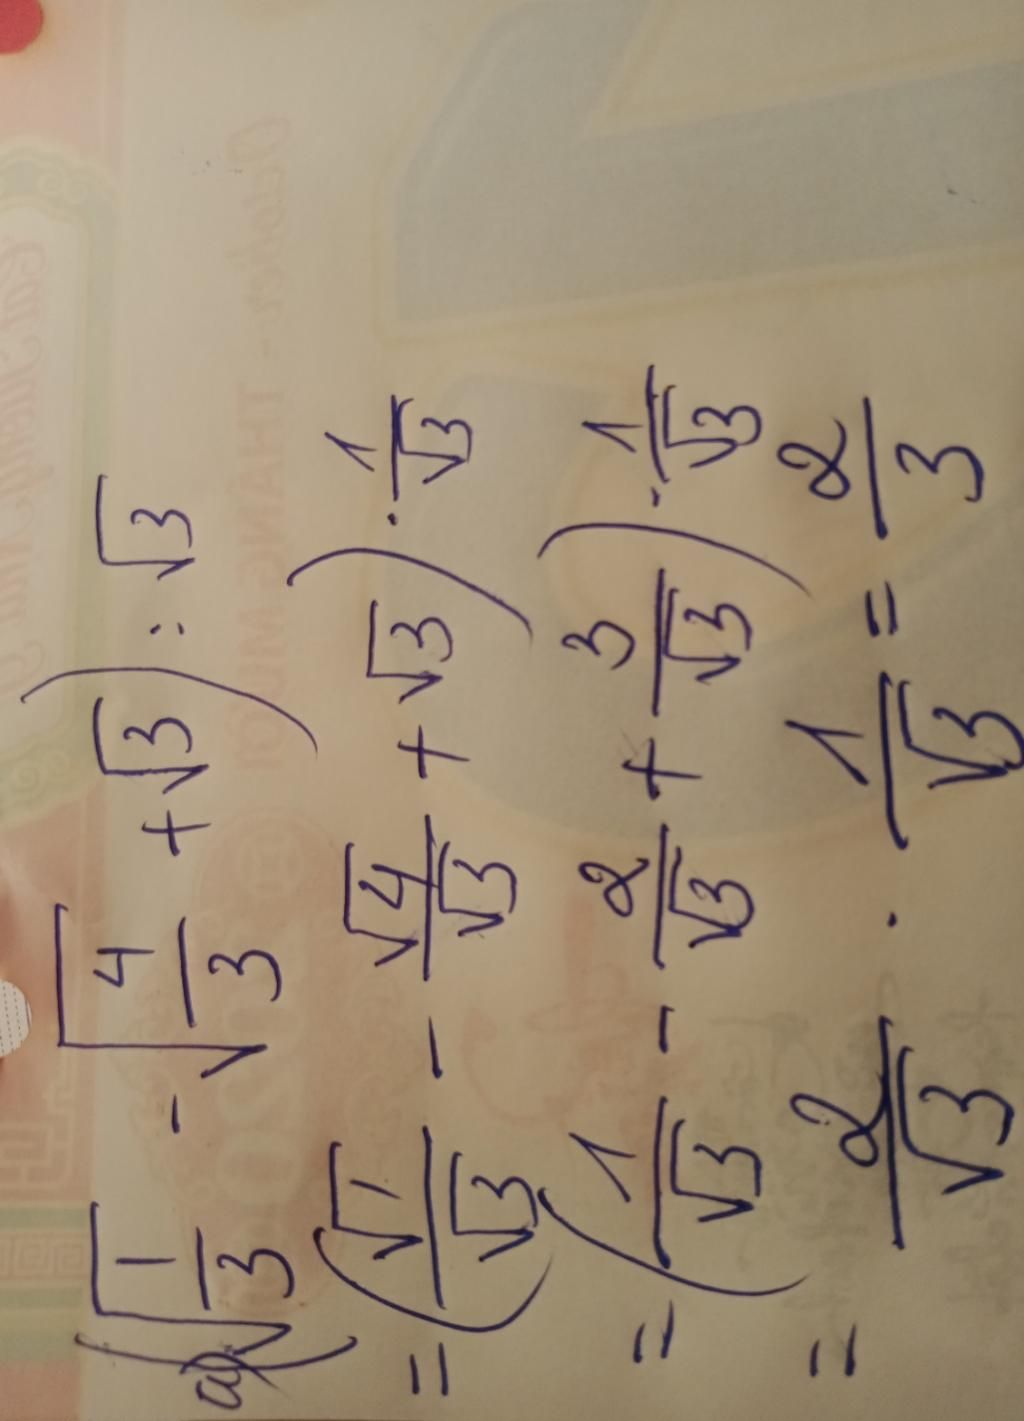 a) (√(1/3) - √(4/3) + √3) : √3
= (√1/√3 - √4/√3 + √3) · 1/√3
= (1/√3 - 2/√3 + 3/√3) · 1/√3
= 2/√3 · 1/√3 = 2/3